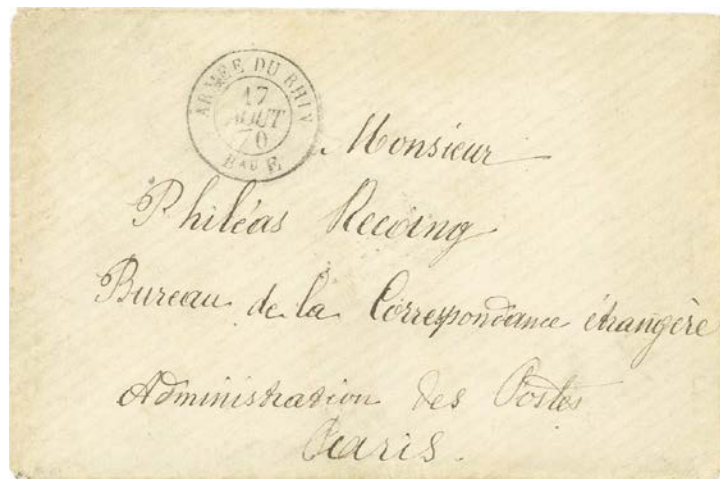 ARMÉE DU RHIN
17
AOUT
70
Bau E
Monsieur
Philéas Recoing
Bureau de la Correspondance étrangère
Administration des Postes
Paris.